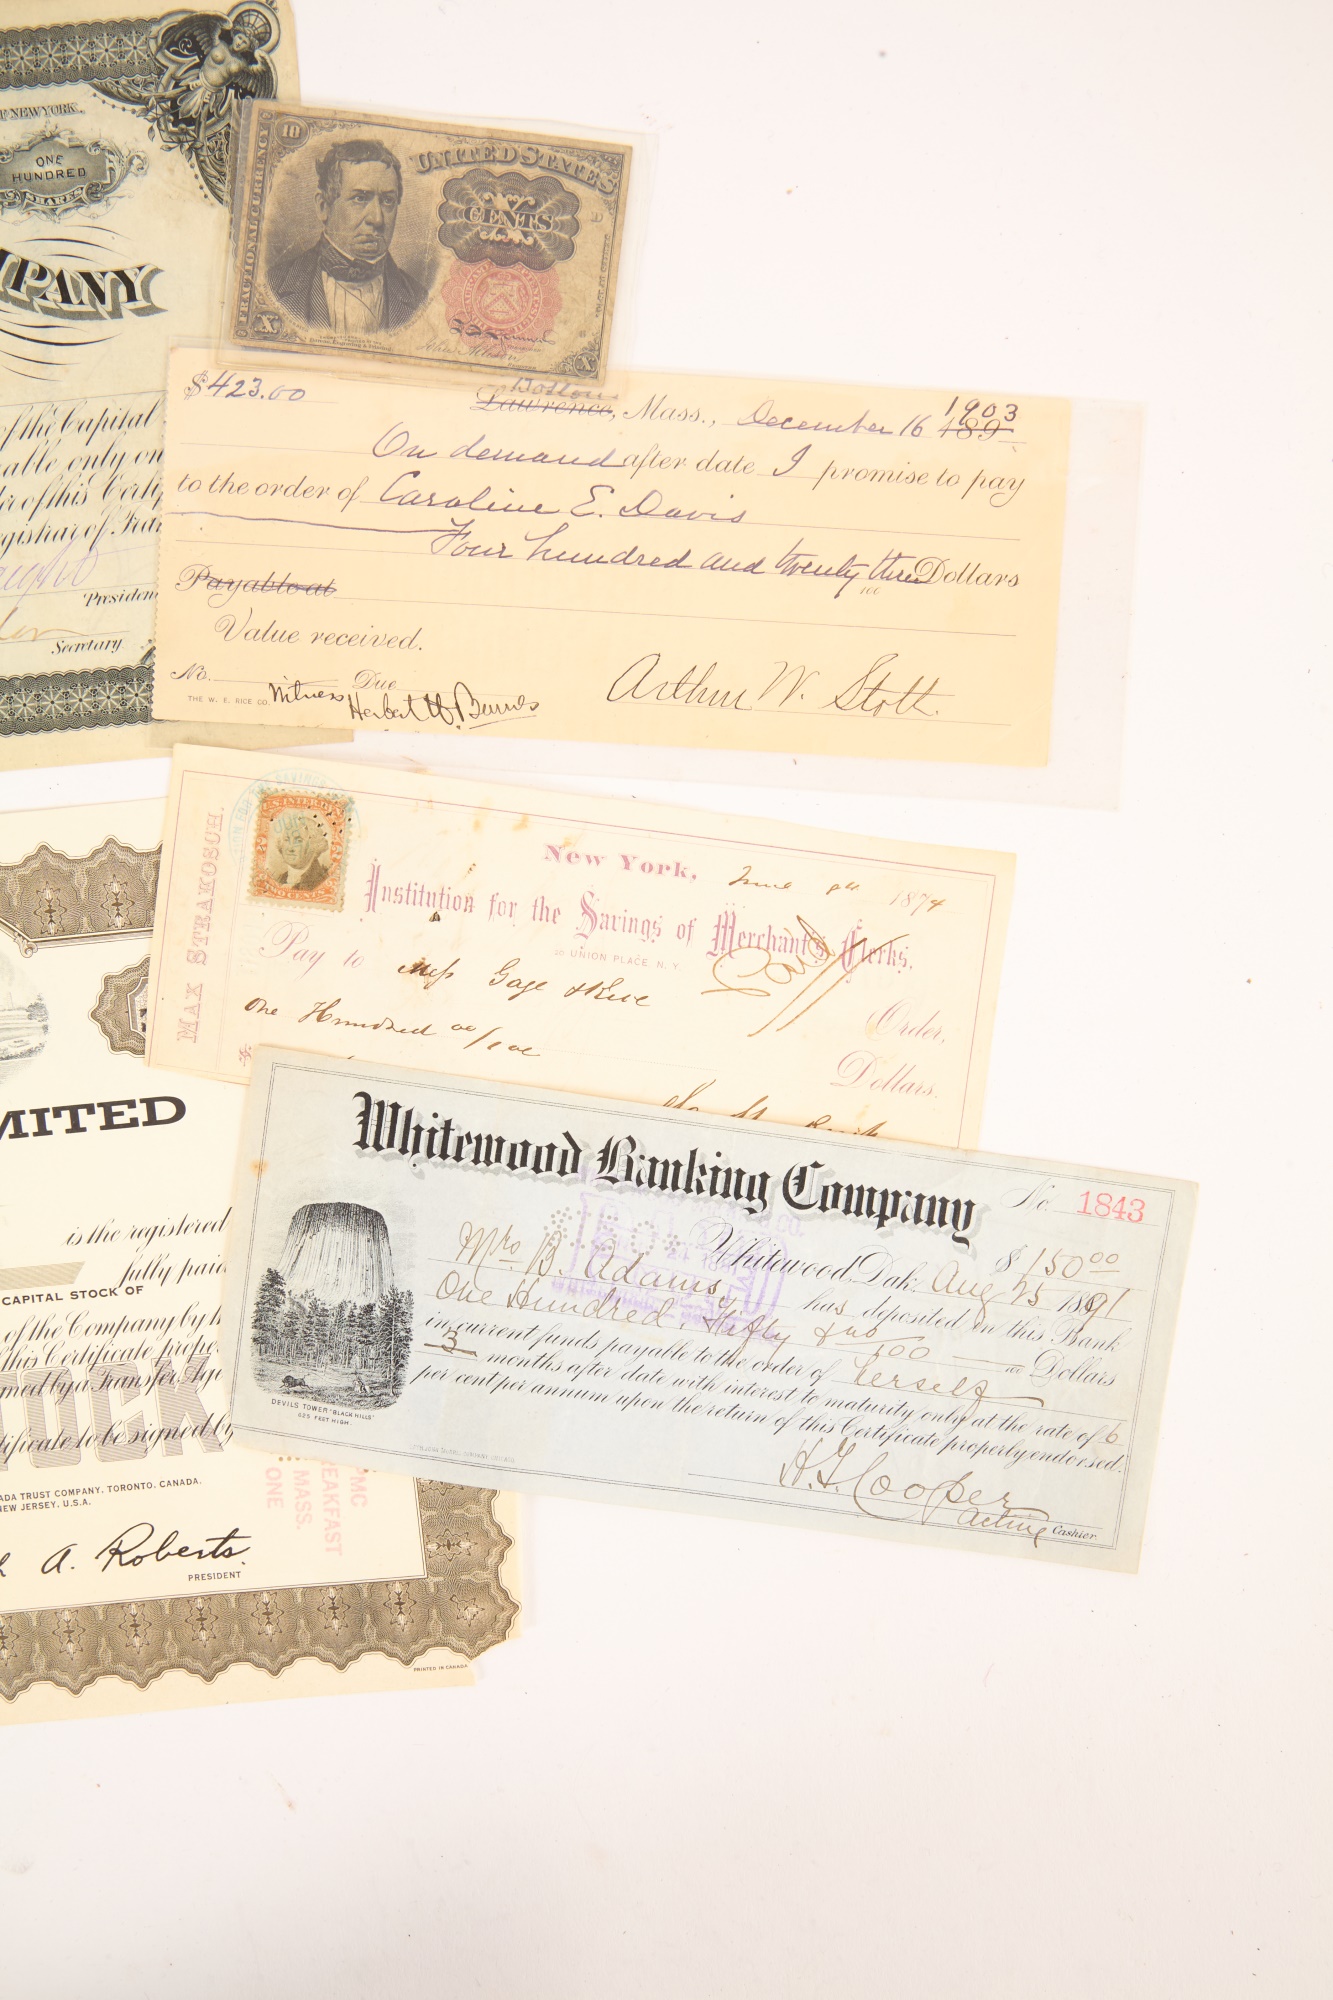 OF NEW YORK.
ONE
HUNDRED
SHARES
MPANY
of the Capital
able only on
er of this Certif
egistrar of Tran
President
Secretary
FRACTIONAL CURRENCY
10
UNITED STATES
CENTS
X
X
$423.00
Boston
Lawrence, Mass., December 16 1903
189
On demand after date I promise to pay
to the order of Caroline E. Davis
Four hundred and twenty three Dollars
100
Payable at
Value received.
No. Due
THE W. E. RICE CO.
Witness
Herbert W. Burns
Arthur W. Stott.
MAX STRAKOSCH.
New York, June 9th 1874
Institution for the Savings of Merchant's Clerks.
20 UNION PLACE, N.Y.
Paid
Pay to Mess Gage & Rice
Order,
One Hundred 00/100
Dollars.
Whitewood Banking Company
No. 1843
Whitewood, Dak. Aug 25 1891
$150.00
Mrs. B. Adams, has deposited in this Bank
One Hundred Fifty & no/100 Dollars
in current funds payable to the order of herself
3 months after date with interest to maturity only at the rate of 6
per cent per annum upon the return of this Certificate properly endorsed.
DEVILS TOWER "BLACK HILLS"
625 FEET HIGH.
H. F. Cooper
acting Cashier.
MITED
is the registered
fully paid
CAPITAL STOCK OF
of the Company by
this Certificate prope
med by a Transfer Age
tificate to be signed by
ADA TRUST COMPANY, TORONTO, CANADA.
NEW JERSEY, U.S.A.
A. Roberts.
PRESIDENT
PMC
EAKFAST
MASS.
ONE
PRINTED IN CANADA